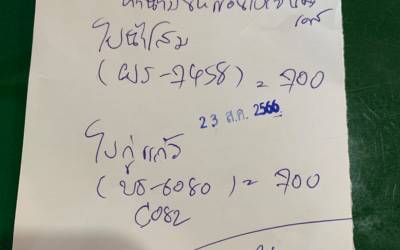 ไปน้ำโสม
(ผร-7458) = 700
23 ส.ค. 2566
ไปกู่แก้ว
(บธ-6080) = 700
C082